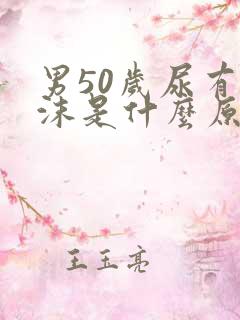 男50歲尿有
沫是什麼原
王玉亮